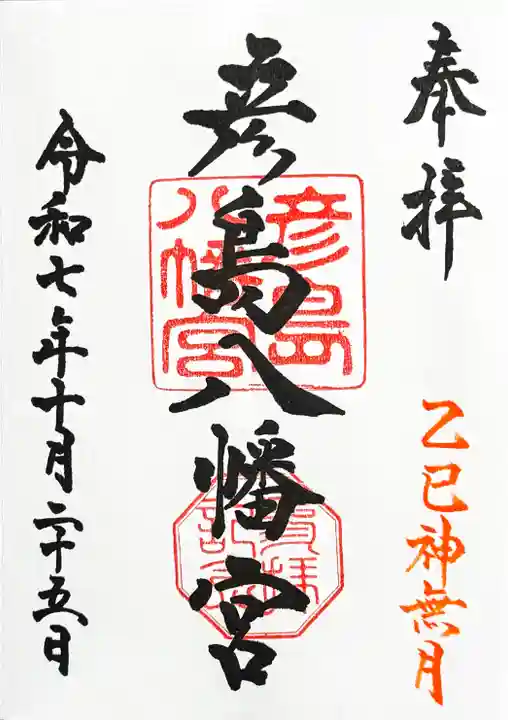 奉拝
乙巳神無月
彦島八幡宮
彦島
八幡宮
参拝
記念
令和七年十月二十五日